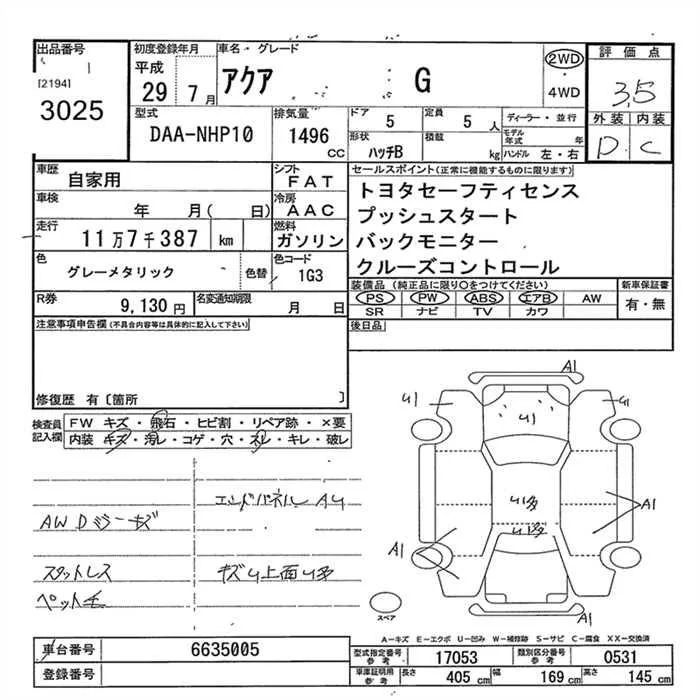 出品番号 初度登録年月 車名・グレード 評価点
[2194] 平成 アクア G 2WD ・ 4WD 3.5
3025 29 7月 外装 内装
D C
型式 排気量 ドア 5 定員 5人 ディーラー・並行
DAA-NHP10 1496 CC 形状 ハッチB 積載 kg モデル年式 年
ハンドル 左・右
車歴 自家用 シフト FAT セールスポイント(正常に機能するものに限ります)
車検 年 月( 日) 冷房 AAC トヨタセーフティセンス
走行 11万7千387 km 燃料 ガソリン プッシュスタート
バックモニター
色 グレーメタリック 色替 色コード 1G3 クルーズコントロール
R券 9,130円 名変通知期限 月 日 装備品 (純正品に限り○をつけてください) 新車保証書
PS PW ABS エアB AW 有・無
SR ナビ TV カワ
注意事項申告欄(不具合内容等は具体的に記入して下さい) 後日品
修復歴 有〔箇所 〕
検査員記入欄 FW キズ・飛石・ヒビ割・リペア跡・×要
内装 キズ・汚レ・コゲ・穴・スレ・キレ・破レ
A1
u1 u1 u1
エンドパネル AU
A1
スタットレス キズu上面u多
A1
A1
スペア
A-キズ E-エクボ U-凹み W-補修跡 S-サビ C-腐食 XX-交換済
車台番号 6635005 型式指定番号 参考 17053 類別区分番号 参考 0531
登録番号 車庫証明用 参考 長さ 405 cm 幅 169 cm 高さ 145 cm